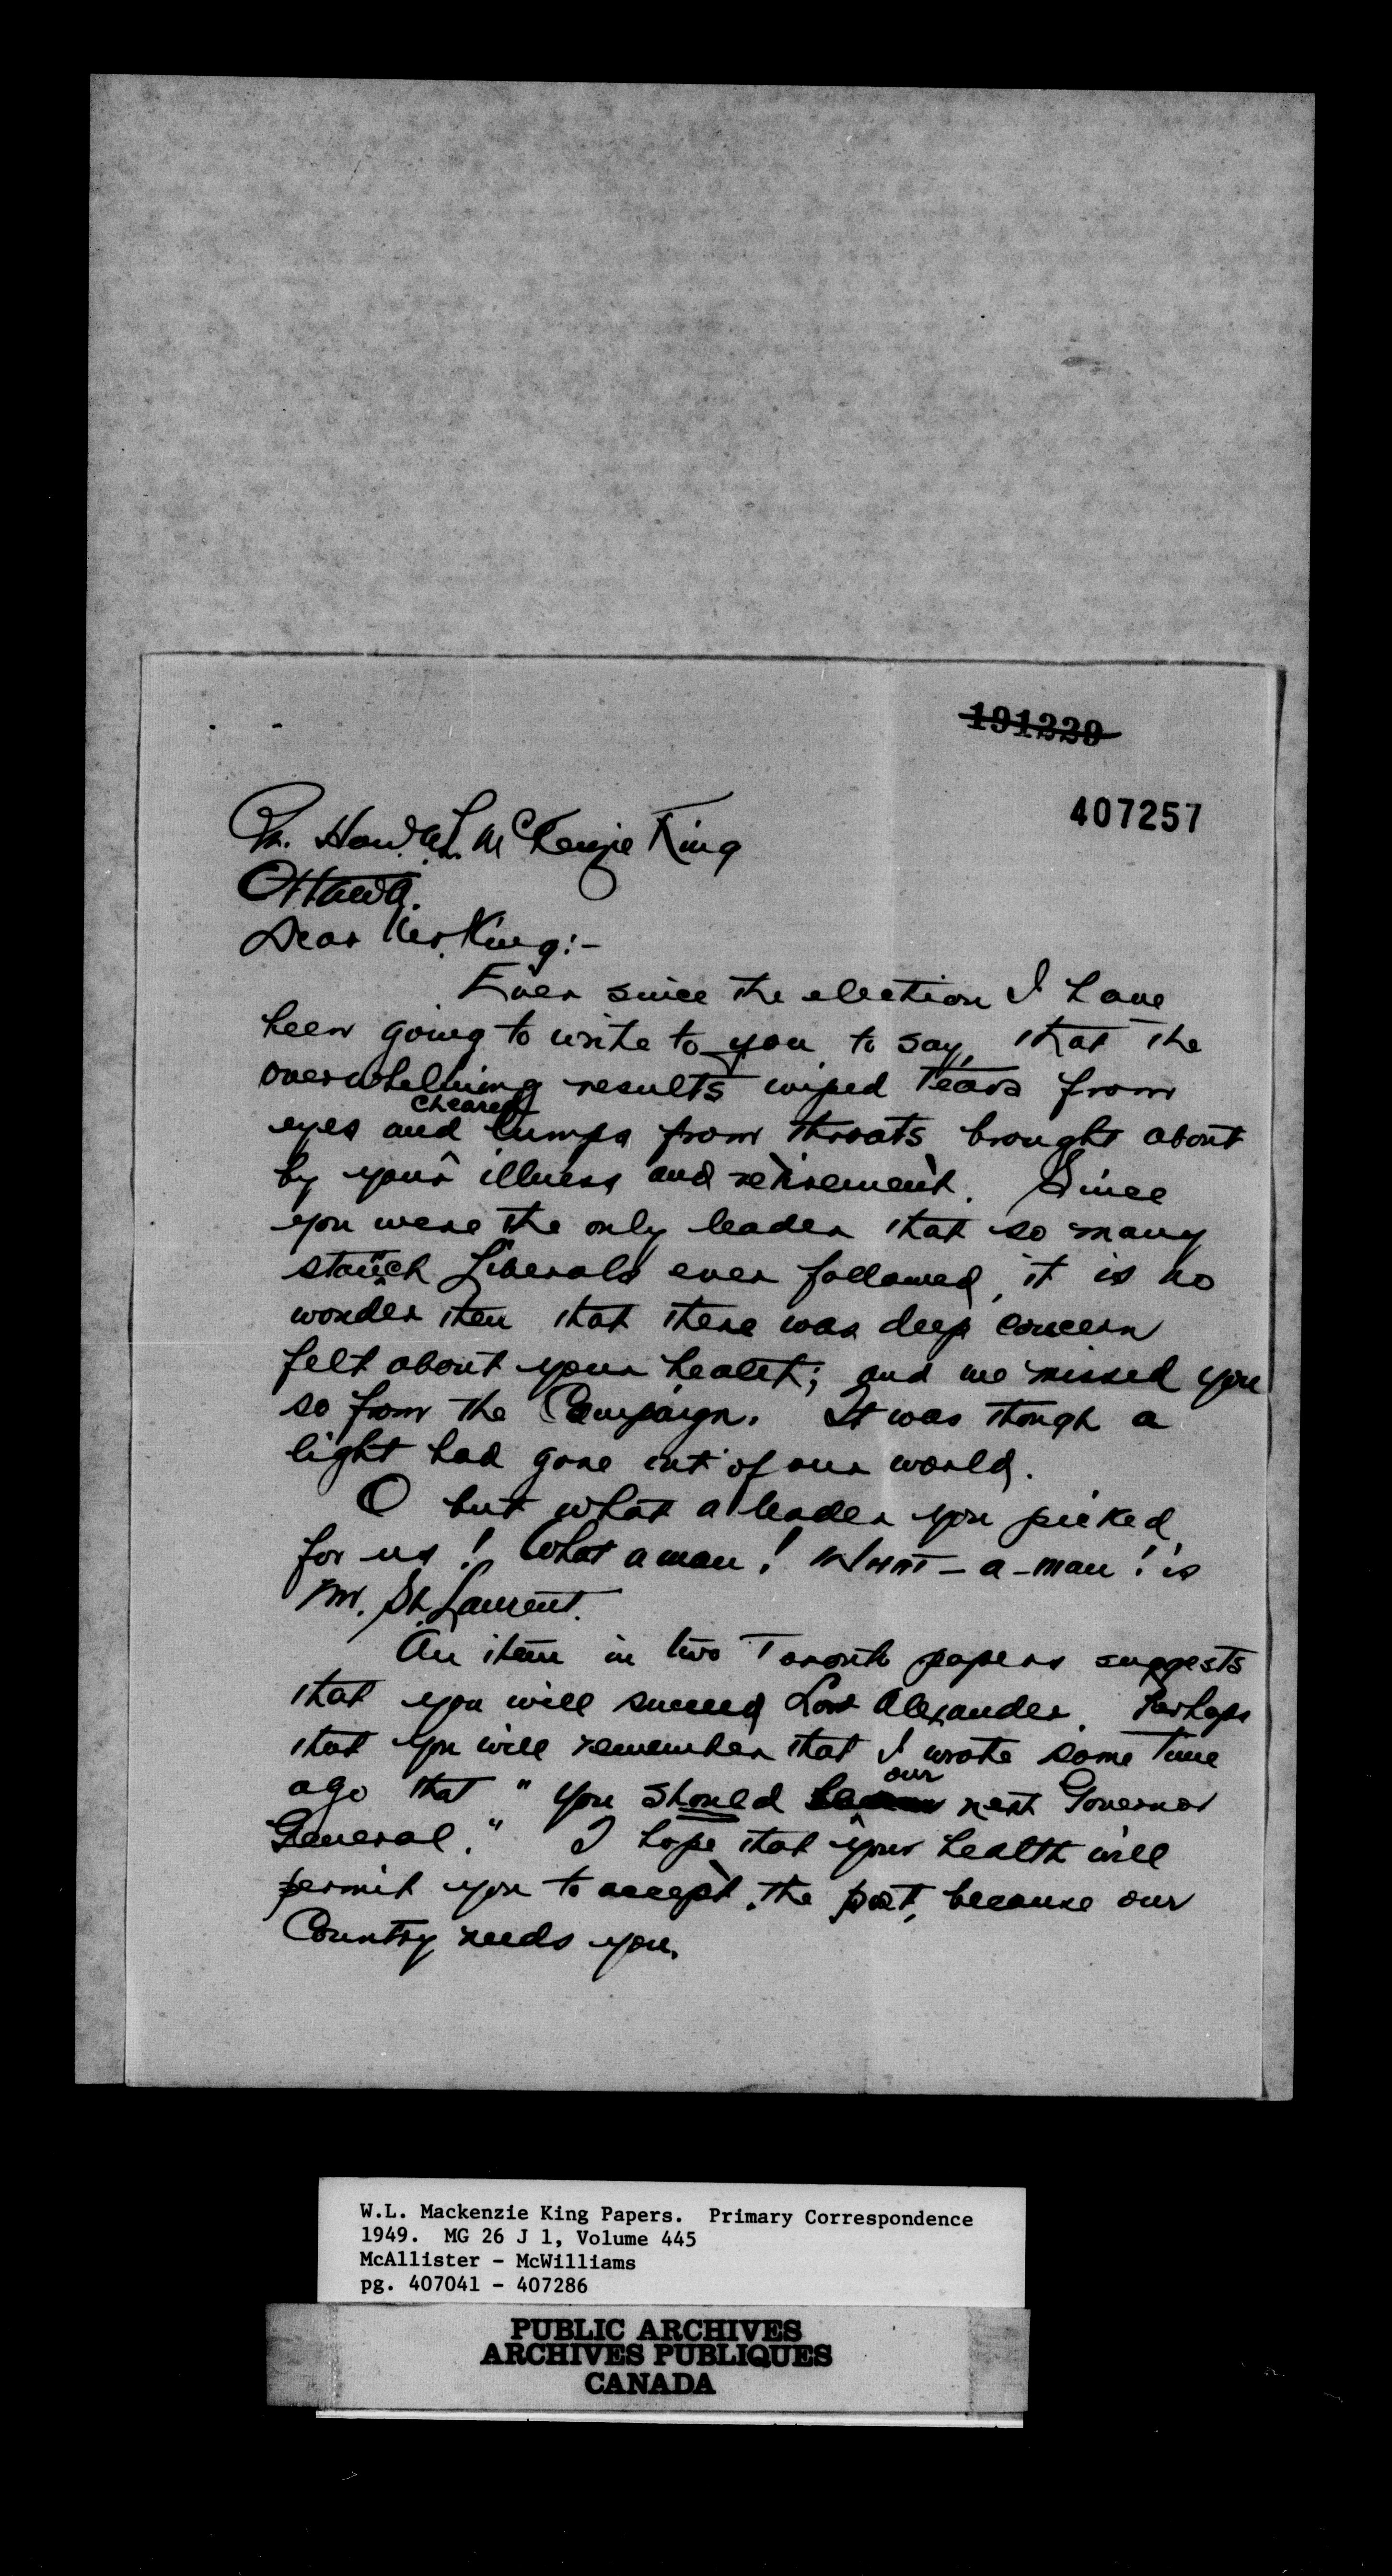 191229
407257
Rt. Hon. W. L. McKenzie King
Ottawa.
Dear Mr. King:-
Ever since the election I have
been going to write to you to say, that the
overwhelming results wiped tears from
eyes and cleared lumps from throats brought about
by your illness and retirement. Since
you were the only leader that so many
staunch Liberals ever followed, it is no
wonder then that there was deep concern
felt about your health; and we missed you
so from the Campaign. It was though a
light had gone out of our world.
O but what a leader you picked
for us! What a man! WHAT-a-man! is
Mr. St. Laurent.
An item in two Toronto papers suggests
that you will succeed Lord Alexander. Perhaps
that you will remember that I wrote some time
ago that "you should our next Governor
General." I hope that your health will
permit you to accept the post, because our
Country needs you.
W.L. Mackenzie King Papers. Primary Correspondence
1949. MG 26 J 1, Volume 445
McAllister - McWilliams
pg. 407041 - 407286
PUBLIC ARCHIVES
ARCHIVES PUBLIQUES
CANADA